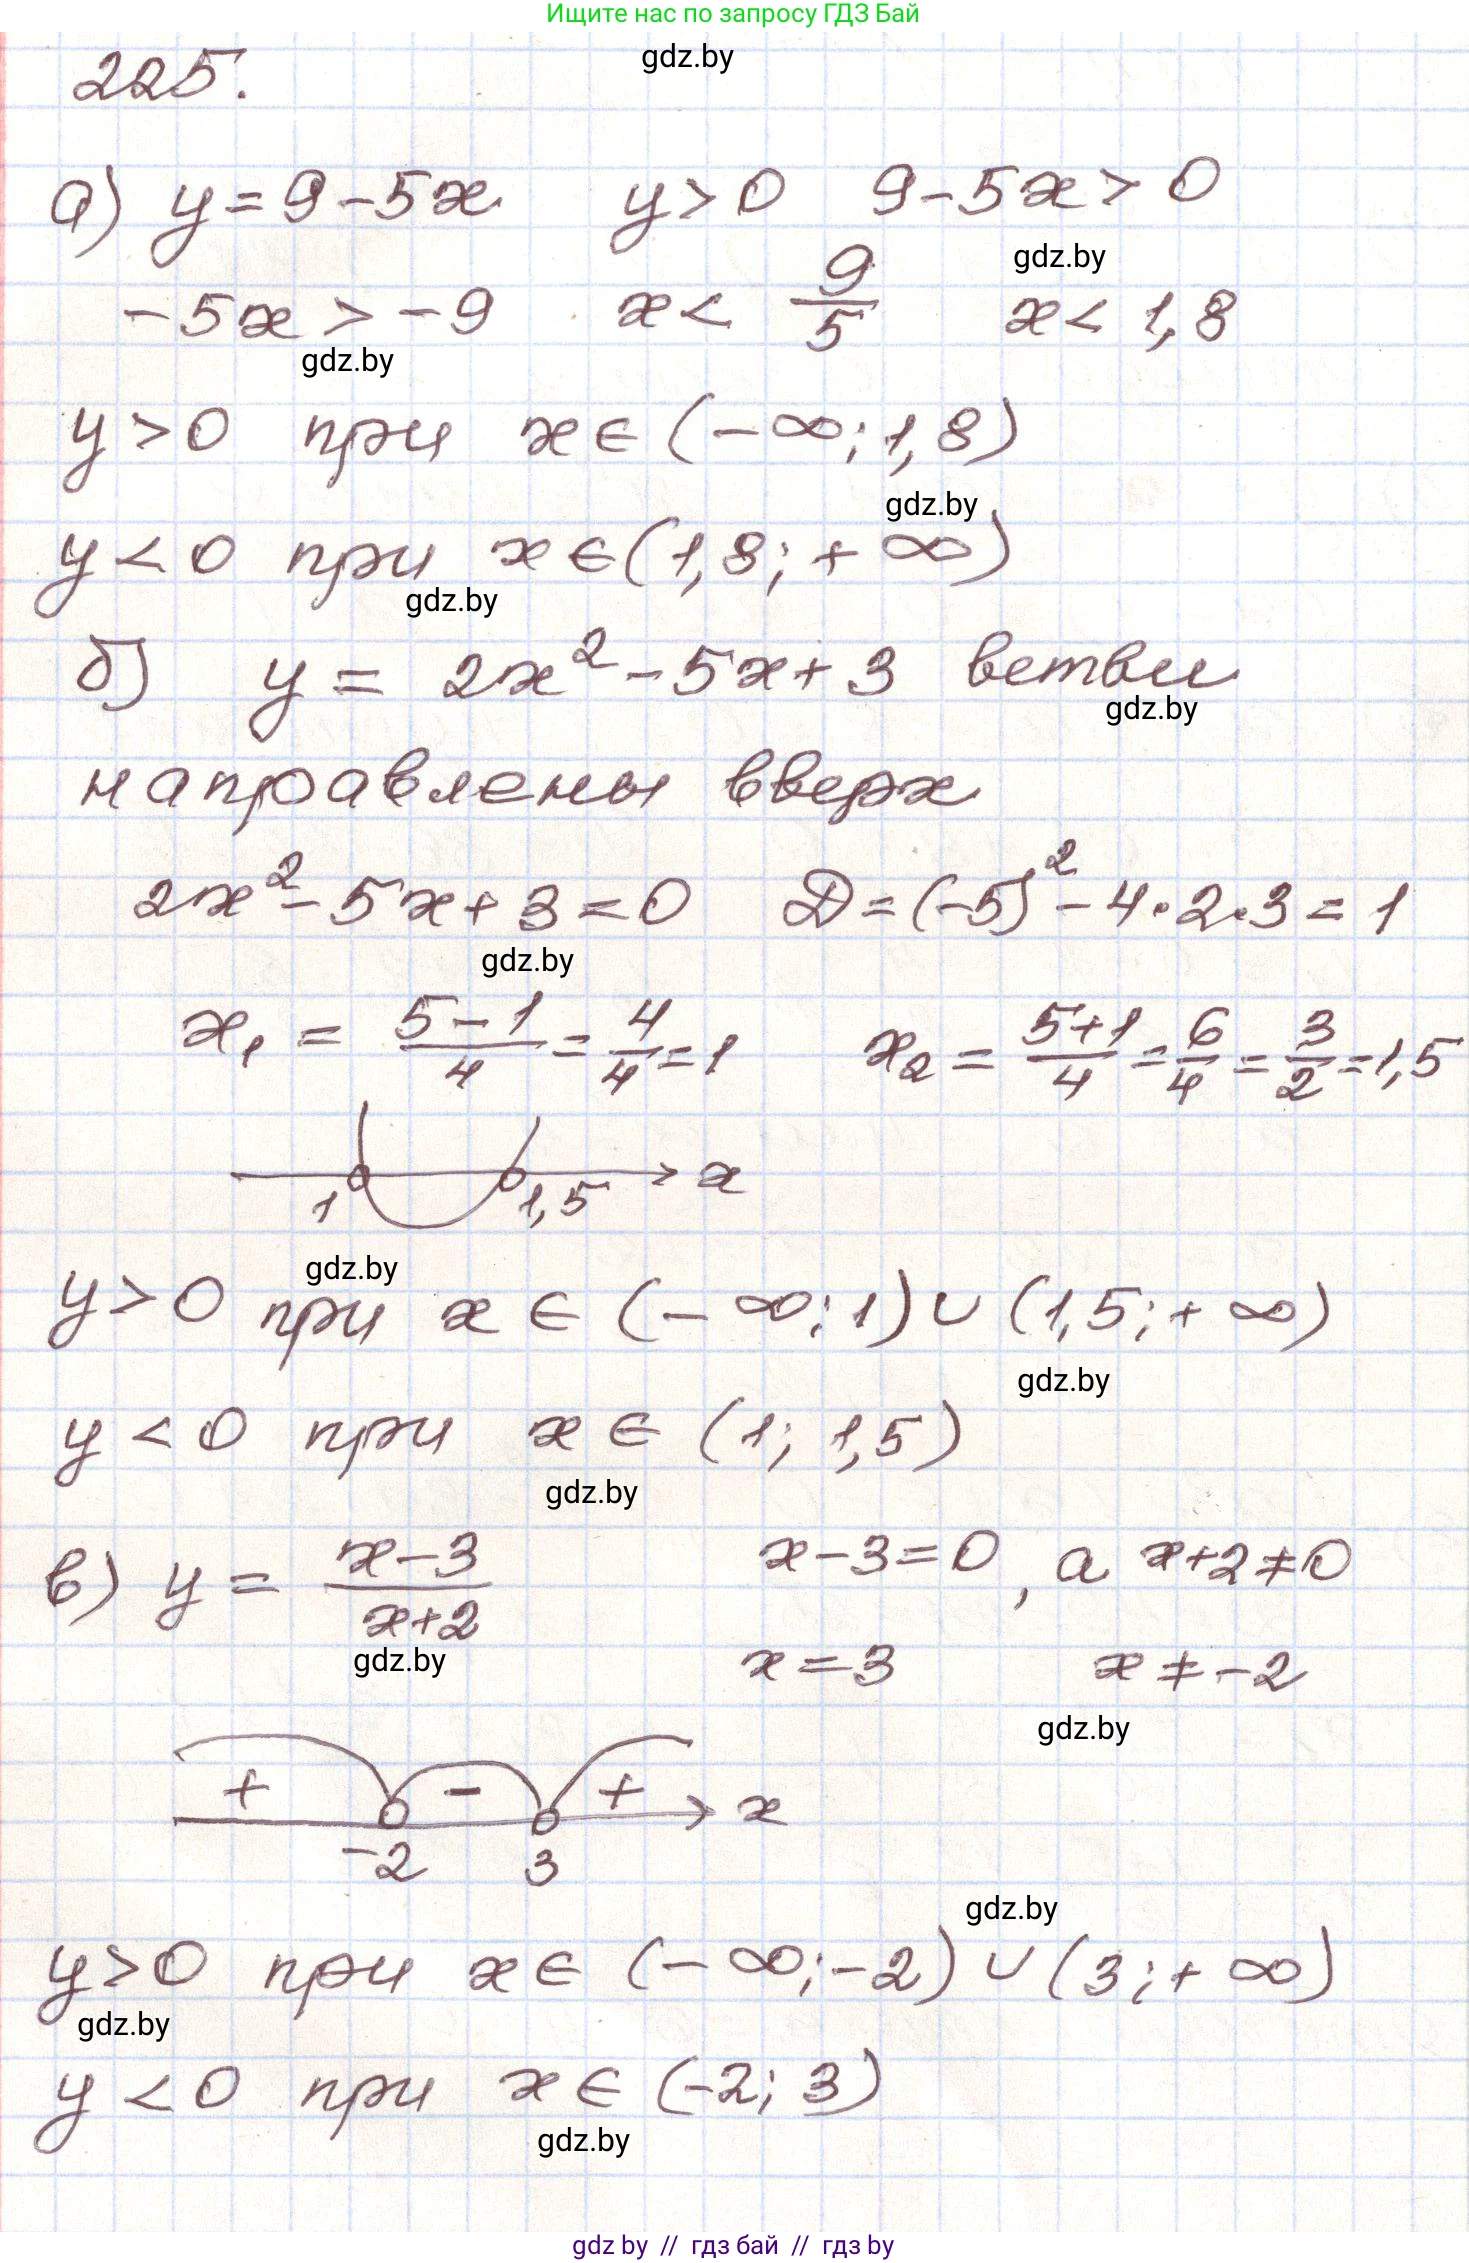 Ищите нас по запросу ГДЗ Бай
gdz.by
225.
а) y = 9 - 5x   y > 0   9 - 5x > 0
gdz.by
-5x > -9   x < 9/5   x < 1,8
gdz.by
y > 0 при x ∈ (-∞; 1,8)
gdz.by
y < 0 при x ∈ (1,8; +∞)
gdz.by
б) y = 2x² - 5x + 3 ветви
gdz.by
направлены вверх
2x² - 5x + 3 = 0   D = (-5)² - 4·2·3 = 1
gdz.by
x₁ = (5-1)/4 = 4/4 = 1   x₂ = (5+1)/4 = 6/4 = 3/2 = 1,5
1   1,5   x
gdz.by
y > 0 при x ∈ (-∞; 1) ∪ (1,5; +∞)
gdz.by
y < 0 при x ∈ (1; 1,5)
gdz.by
в) y = (x-3)/(x+2)   x - 3 = 0, а x + 2 ≠ 0
gdz.by
x = 3   x ≠ -2
gdz.by
+ - + x
-2   3
gdz.by
y > 0 при x ∈ (-∞; -2) ∪ (3; +∞)
gdz.by
y < 0 при x ∈ (-2; 3)
gdz.by
gdz by // гдз бай // gdz by